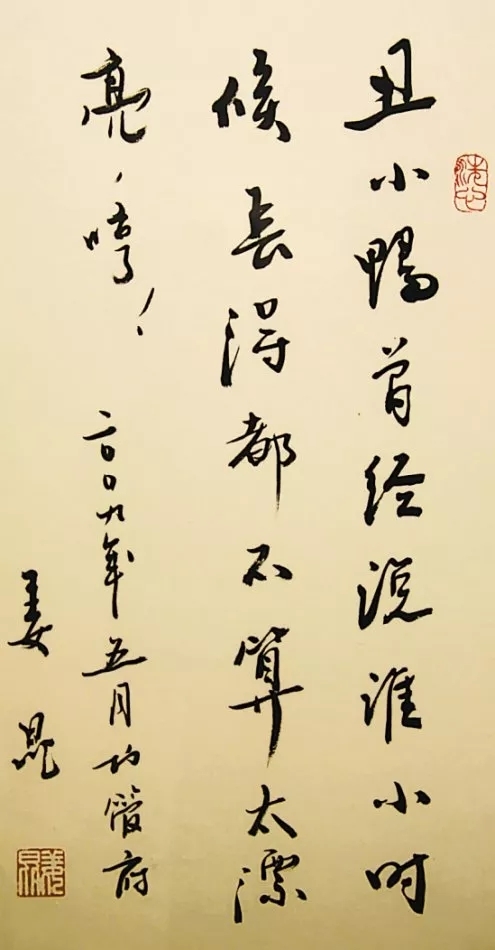 丑小鸭曾经说谁小时
候长得都不算太漂
亮，哼！
二〇〇九年五月
姜昆
姜昆